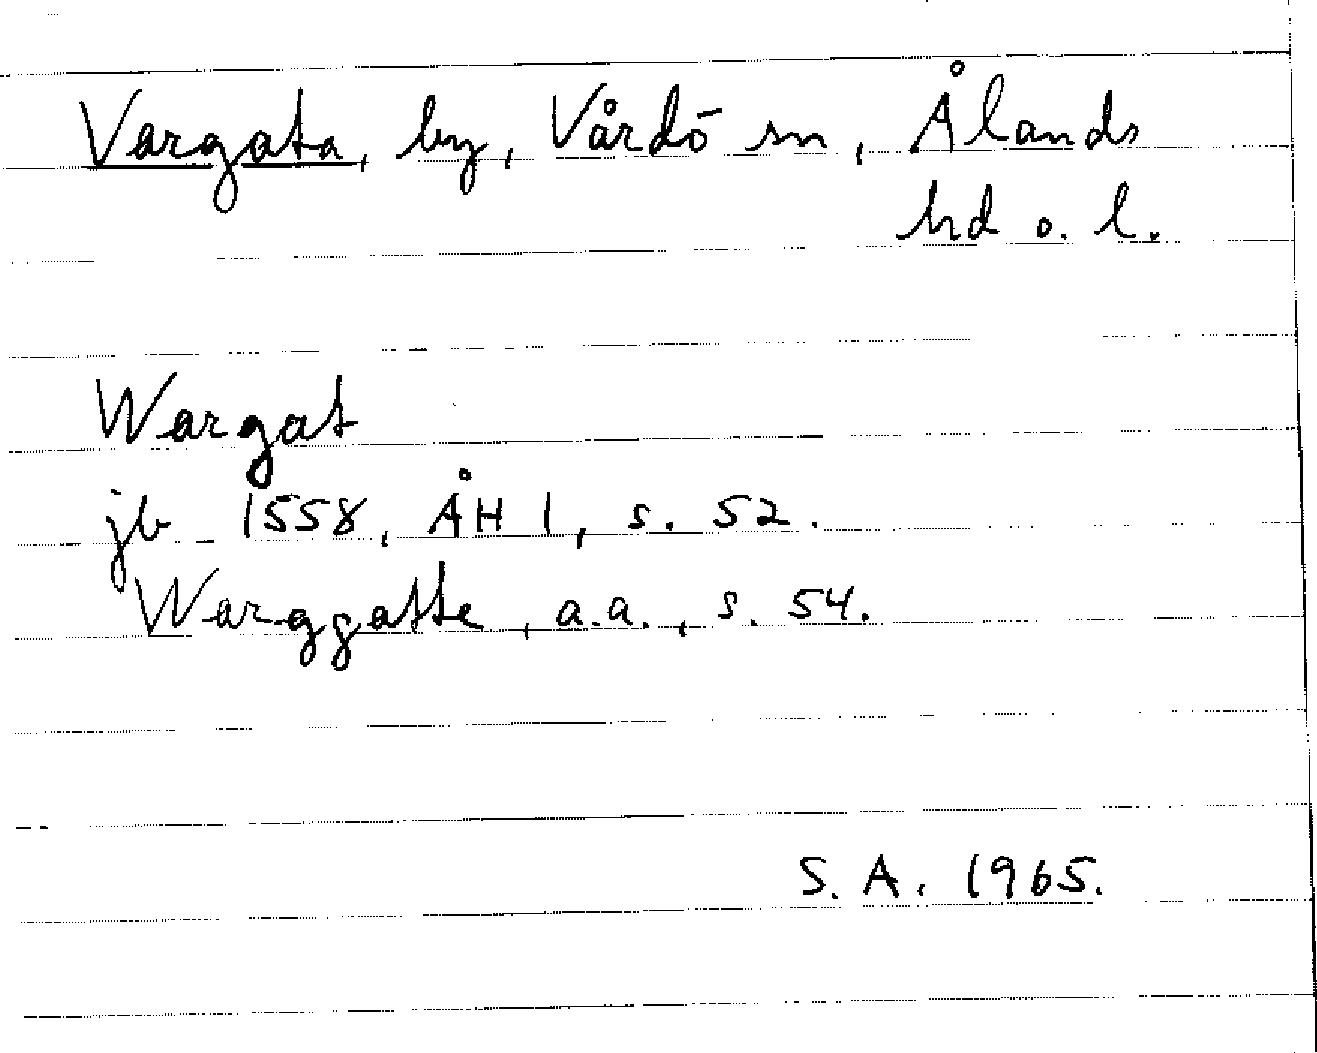 Vargata, by, Vårdö sn, Ålands
hd o. l.
Wargat
jb 1558, ÅH 1, s. 52.
Warggatte, a.a., s. 54.
S. A. 1965.